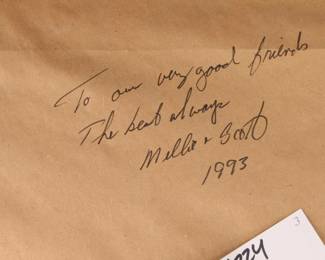 To our very good friends
The best always
Millie + Scott
1993
3